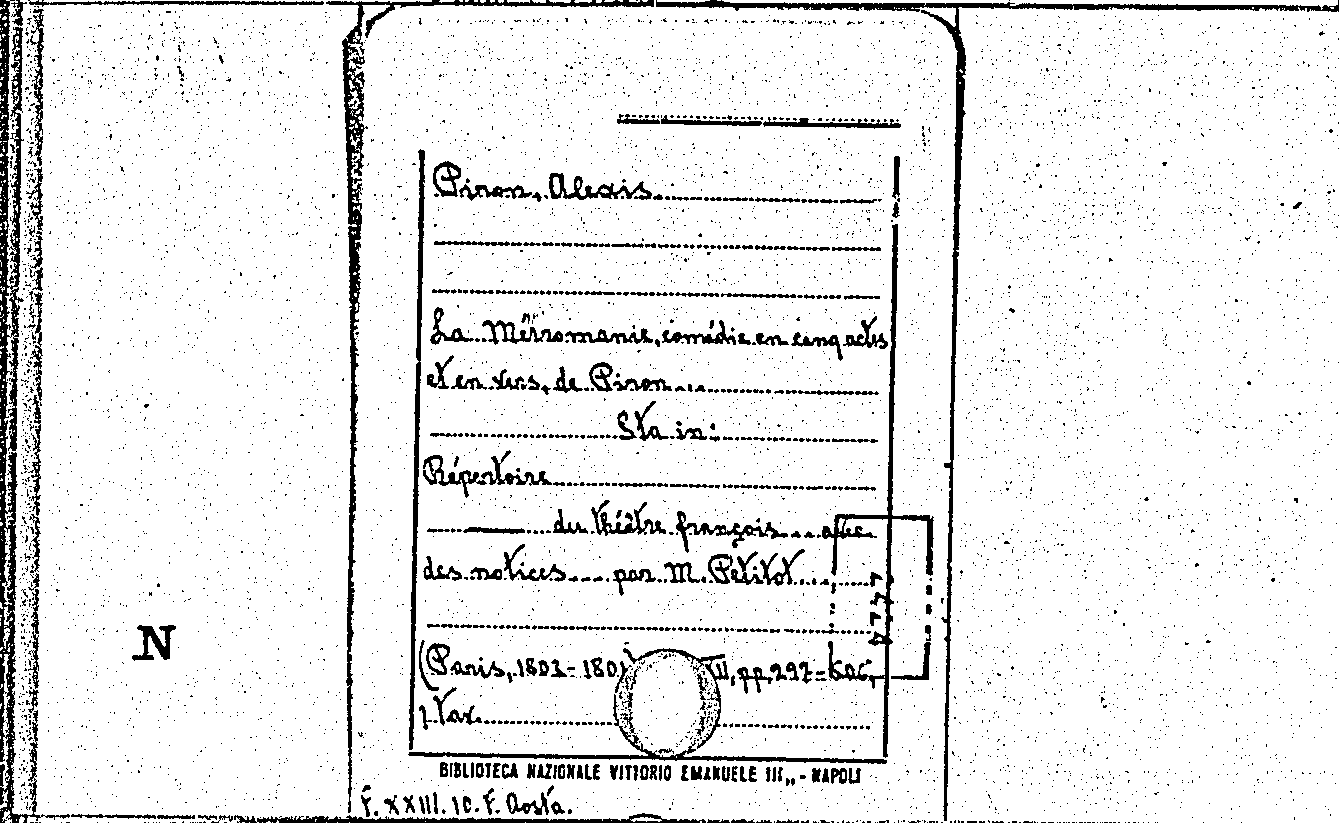 Piron, Alexis
La Métromanie, comédie en cinq actes
et en vers, de Piron...
Sta in:
Répertoire
du théâtre françois... avec
des notices... par M. Petitot...
(Paris, 1803- II, pp. 297-
1 tav.
BIBLIOTECA NAZIONALE VITTORIO EMANUELE III,, - NAPOLI
F. XXIII. 10. F. Aosta.
N